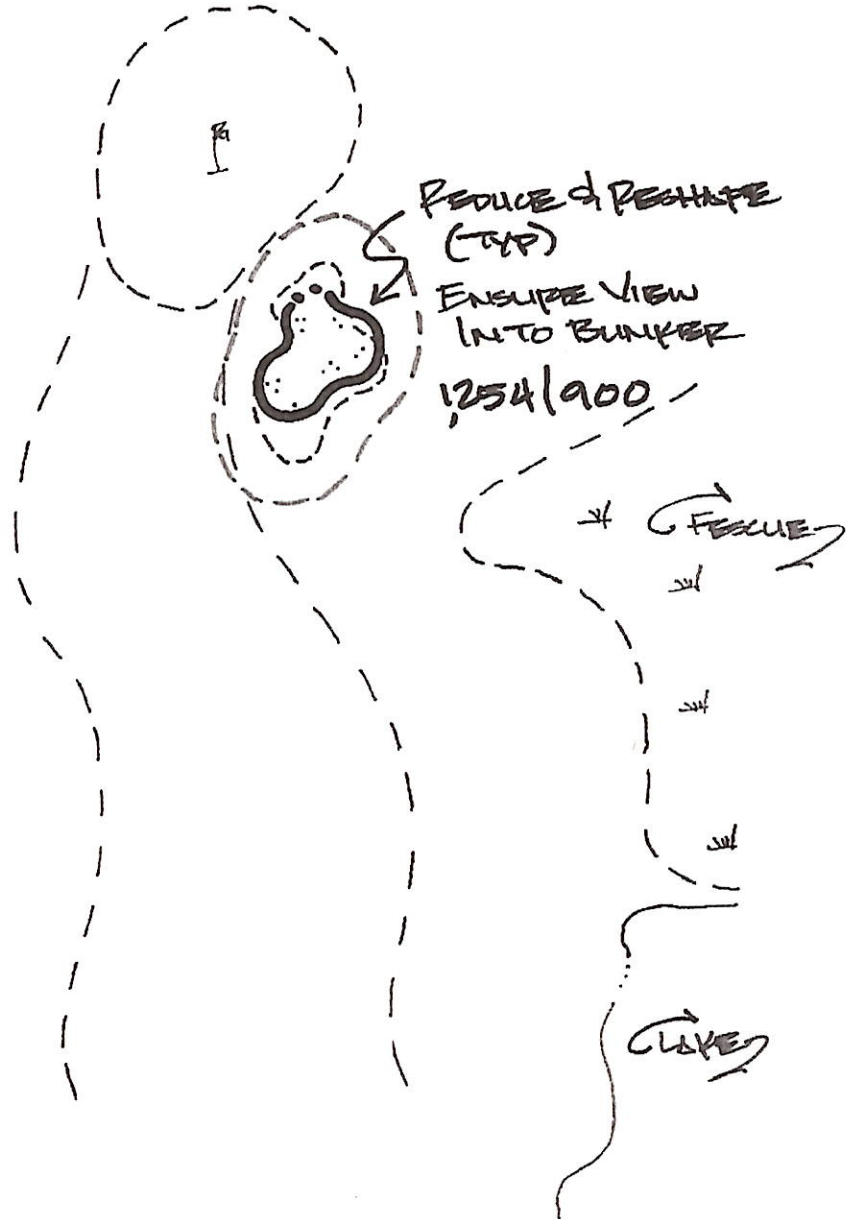 REDUCE & RESHAPE
(TYP)
ENSURE VIEW
INTO BUNKER
1,254/900
FESCUE
LAKE